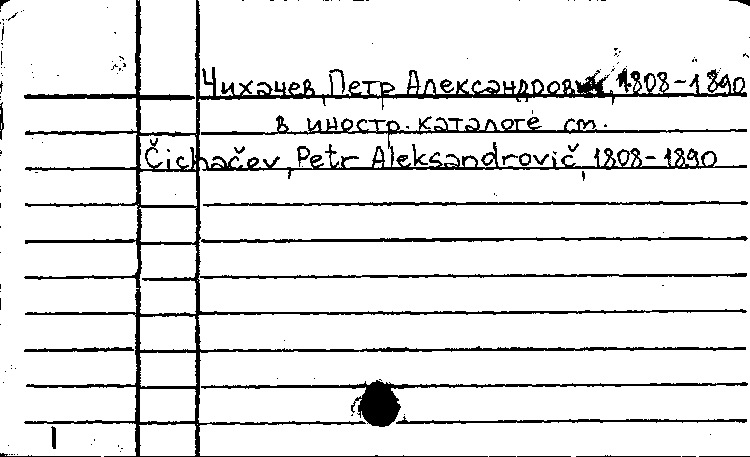 Чихачев, Петр Александрович, 1808-1890
в иностр. каталоге см.
Čichačev, Petr Aleksandrovič, 1808-1890